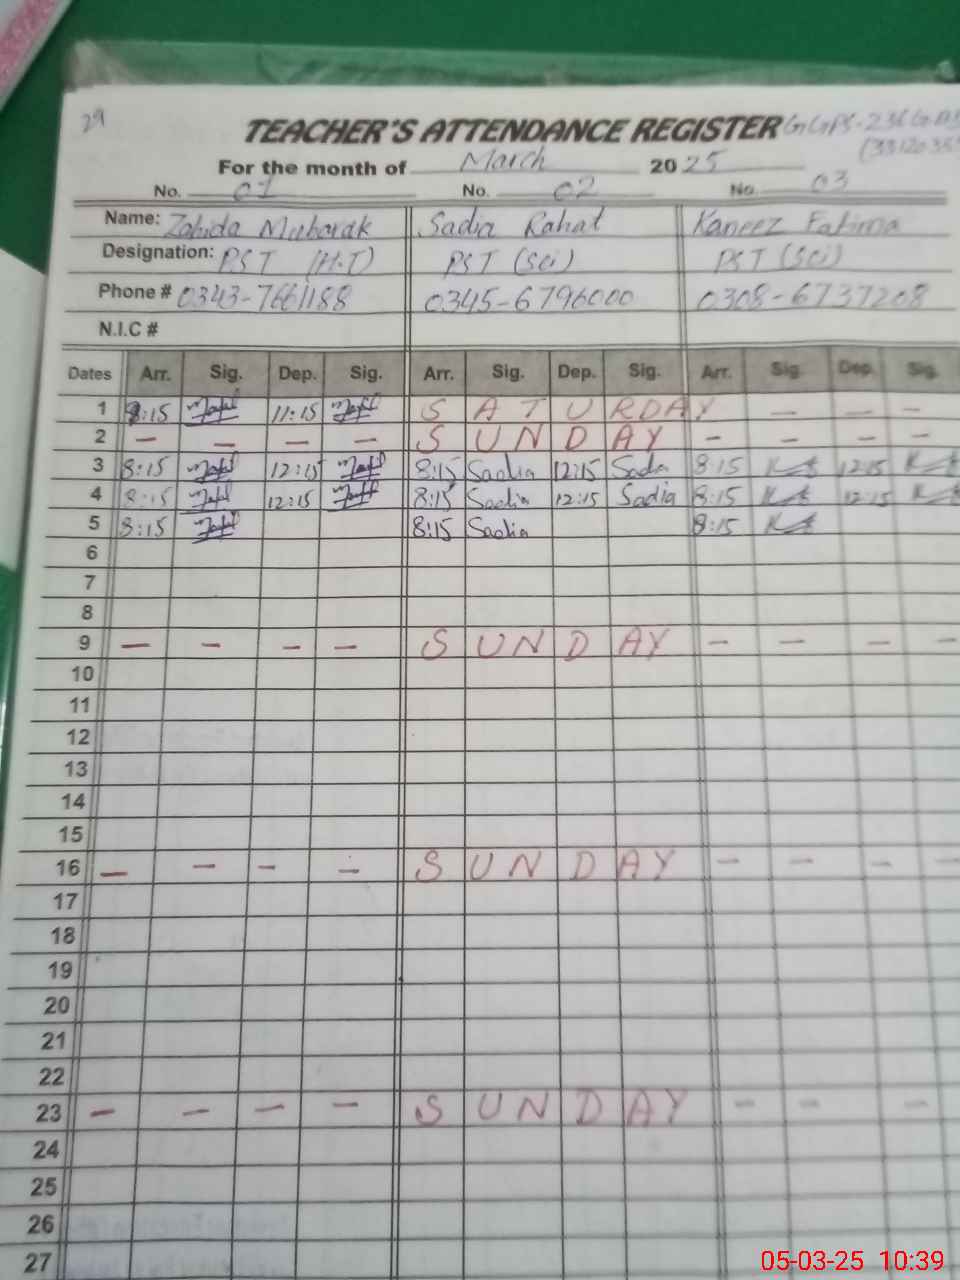 29
TEACHER'S ATTENDANCE REGISTER
For the month of March 2025
No. 01 No. 02 No. 03
Name: Zahida Mubarak Sadia Rahat Kaneez Fatima
Designation: PST (H.T) PST (Sci) PST (Sci)
Phone # 0343-7661188 0345-6796000 0308-6737208
N.I.C #
Dates Arr. Sig. Dep. Sig. Arr. Sig. Dep. Sig. Arr. Sig. Dep. Sig.
1 8:15 11:15 S A T U R D A Y — — —
2 — — — — S U N D A Y — — — —
3 8:15 12:15 8:15 Sadia 12:15 Sadia 8:15 12:15
4 8:15 12:15 8:15 Sadia 12:15 Sadia 8:15 12:15
5 8:15 8:15 Sadia 8:15
6
7
8
9 — — — — S U N D A Y — — — —
10
11
12
13
14
15
16 — — — — S U N D A Y — — — —
17
18
19
20
21
22
23 — — — — S U N D A Y — — —
24
25
26
27
05-03-25 10:39